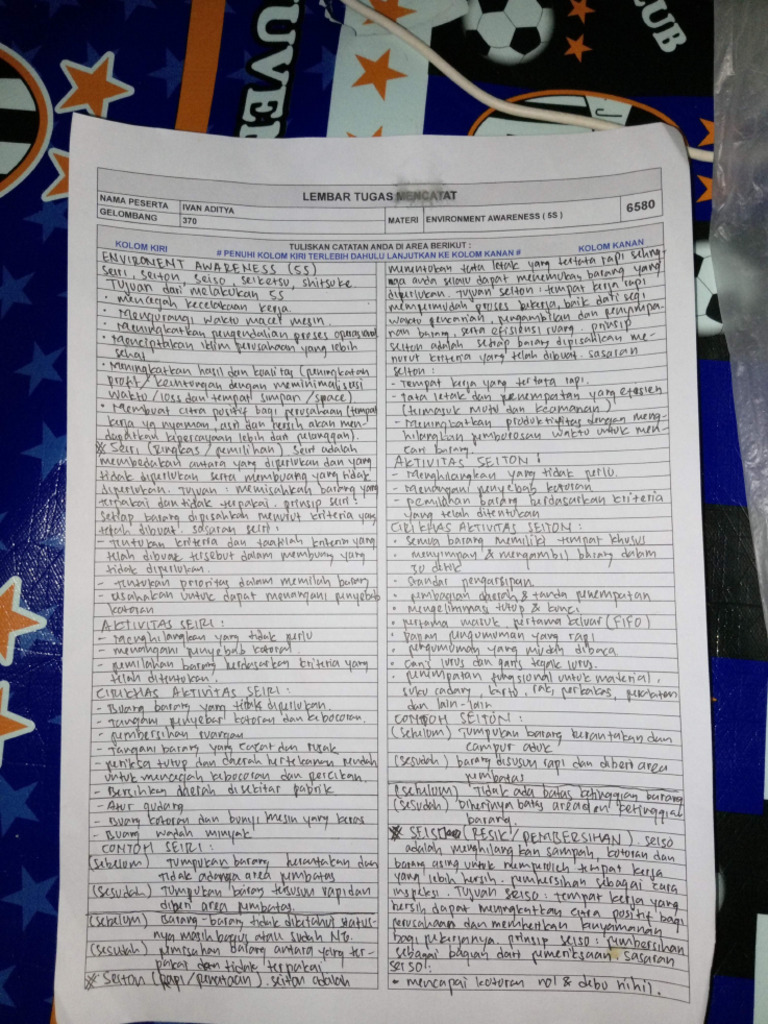 JUVE
CLUB
LEMBAR TUGAS MENCATAT
NAMA PESERTA IVAN ADITYA
GELOMBANG 370 MATERI ENVIRONMENT AWARENESS ( 5S ) 6580
TULISKAN CATATAN ANDA DI AREA BERIKUT :
KOLOM KIRI # PENUHI KOLOM KIRI TERLEBIH DAHULU LANJUTKAN KE KOLOM KANAN # KOLOM KANAN
ENVIRONENT AWARENESS (5S)
Seiri, seiton seiso, seiketsu, shitsuke.
Tujuan dari melakukan 5S
• mencegah kecelakaan kerja.
• Mengurangi waktu macet mesin.
• Meningkatkan pengendalian proses operasional
• Menciptakan iklim perusahaan yang lebih
sehat
• Meningkatkan hasil dan kualitas (peningkatan
profit / keuntungan dengan meminimalisasi
waktu / loss dan tempat simpan / space)
• Membuat citra positif bagi perusahaan (tempat
kerja yg nyaman, asri dan bersih akan men-
dapatkan kepercayaan lebih dari pelanggan).
* Seiri (ringkas / pemilihan) seiri adalah
membedakan antara yang diperlukan dan yang
tidak diperlukan serta membuang yang tidak
diperlukan. Tujuan : memisahkan barang yang
terpakai dan tidak terpakai. prinsip seiri :
setiap barang dipisahkan menurut kriteria yang
telah dibuat. sasaran seiri :
- Tentukan kriteria dan taatilah kriteria yang
telah dibuat tersebut dalam membuang yang
tidak diperlukan.
- Tentukan prioritas dalam memilah barang
- usahakan untuk dapat menangani penyebab
kotoran
AKTIVITAS SEIRI :
- Menghilangkan yang tidak perlu
- menangani penyebab kotoran
- pemilahan barang berdasarkan kriteria yang
telah ditentukan.
CIRIKHAS AKTIVITAS SEIRI :
- Buang barang yang tidak diperlukan.
- Tangani penyebab kotoran dan kebocoran.
- pembersihan ruangan
- Tangani barang yang cacat dan rusak
- periksa tutup dan daerah bertekanan rendah
untuk mencegah kebocoran dan percikan.
- Bersihkan daerah disekitar pabrik
- Atur gudang
- Buang kotoran dan bunyi mesin yang keras
- Buang wadah minyak
CONTOH SEIRI :
(sebelum) Tumpukan barang berantakan dan
tidak adanya area pembatas
(sesudah) Tumpukan barang tersusun rapi dan
diberi area pembatas.
(sebelum) Barang-barang tidak diketahui status-
nya masih bagus atau sudah NG.
(sesudah) pemisahan barang antara yang ter-
pakai dan tidak terpakai
* Seiton (rapi / penataan). seiton adalah
menentukan tata letak yang tertata rapi sehing-
ga anda selalu dapat menemukan barang yang
diperlukan. Tujuan seiton : tempat kerja rapi
mempermudah proses bekerja, baik dari segi
waktu pencarian, pengambilan dan penyimpa-
nan barang, serta efisiensi ruang. prinsip
seiton adalah setiap barang dipisahkan me-
nurut kriteria yang telah dibuat. sasaran
seiton :
- Tempat kerja yang tertata rapi.
- Tata letak dan penempatan yang efesien
(termasuk mutu dan keamanan)
- Meningkatkan produktivitas dengan meng-
hilangkan pemborosan waktu untuk men-
cari barang.
AKTIVITAS SEITON :
- Menghilangkan yang tidak perlu.
- Menangani penyebab kotoran
- pemilahan barang berdasarkan kriteria
yang telah ditentukan
CIRIKHAS AKTIVITAS SEITON :
• semua barang memiliki tempat khusus
• menyimpan & mengambil barang dalam
30 detik
• standar pengarsipan.
• pembagian daerah & tanda penempatan
• mengeliminasi tutup & kunci
• pertama masuk, pertama keluar (FIFO)
• papan pengumuman yang rapi
• pengumuman yang mudah dibaca.
• garis lurus dan garis tegak lurus.
• penempatan fungsional untuk material,
suku cadang, rak, perkakas, peralatan
dan lain-lain
CONTOH SEITON :
(sebelum) Tumpukan barang berantakan dan
campur aduk
(sesudah) barang disusun rapi dan diberi area
pembatas
(sebelum) Tidak ada batas ketinggian barang
(sesudah) diberinya batas area dan ketinggian
barang.
* SEISO (RESIK / PEMBERSIHAN). seiso
adalah menghilangkan sampah, kotoran dan
barang asing untuk memperoleh tempat kerja
yang lebih bersih. pembersihan sebagai cara
inspeksi. Tujuan seiso : tempat kerja yang
bersih dapat meningkatkan citra positif bagi
perusahaan dan memberikan kenyamanan
bagi pekerjanya. prinsip seiso : pembersihan
sebagai bagian dari pemeriksaan sasaran
seiso :
• mencapai kotoran nol & debu nihil.